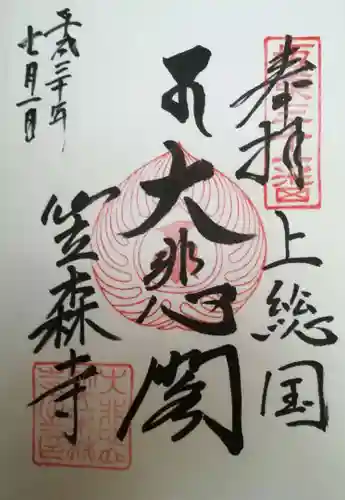 奉拝
上総国
大悲閣
笠森寺
平成三十年
七月一日